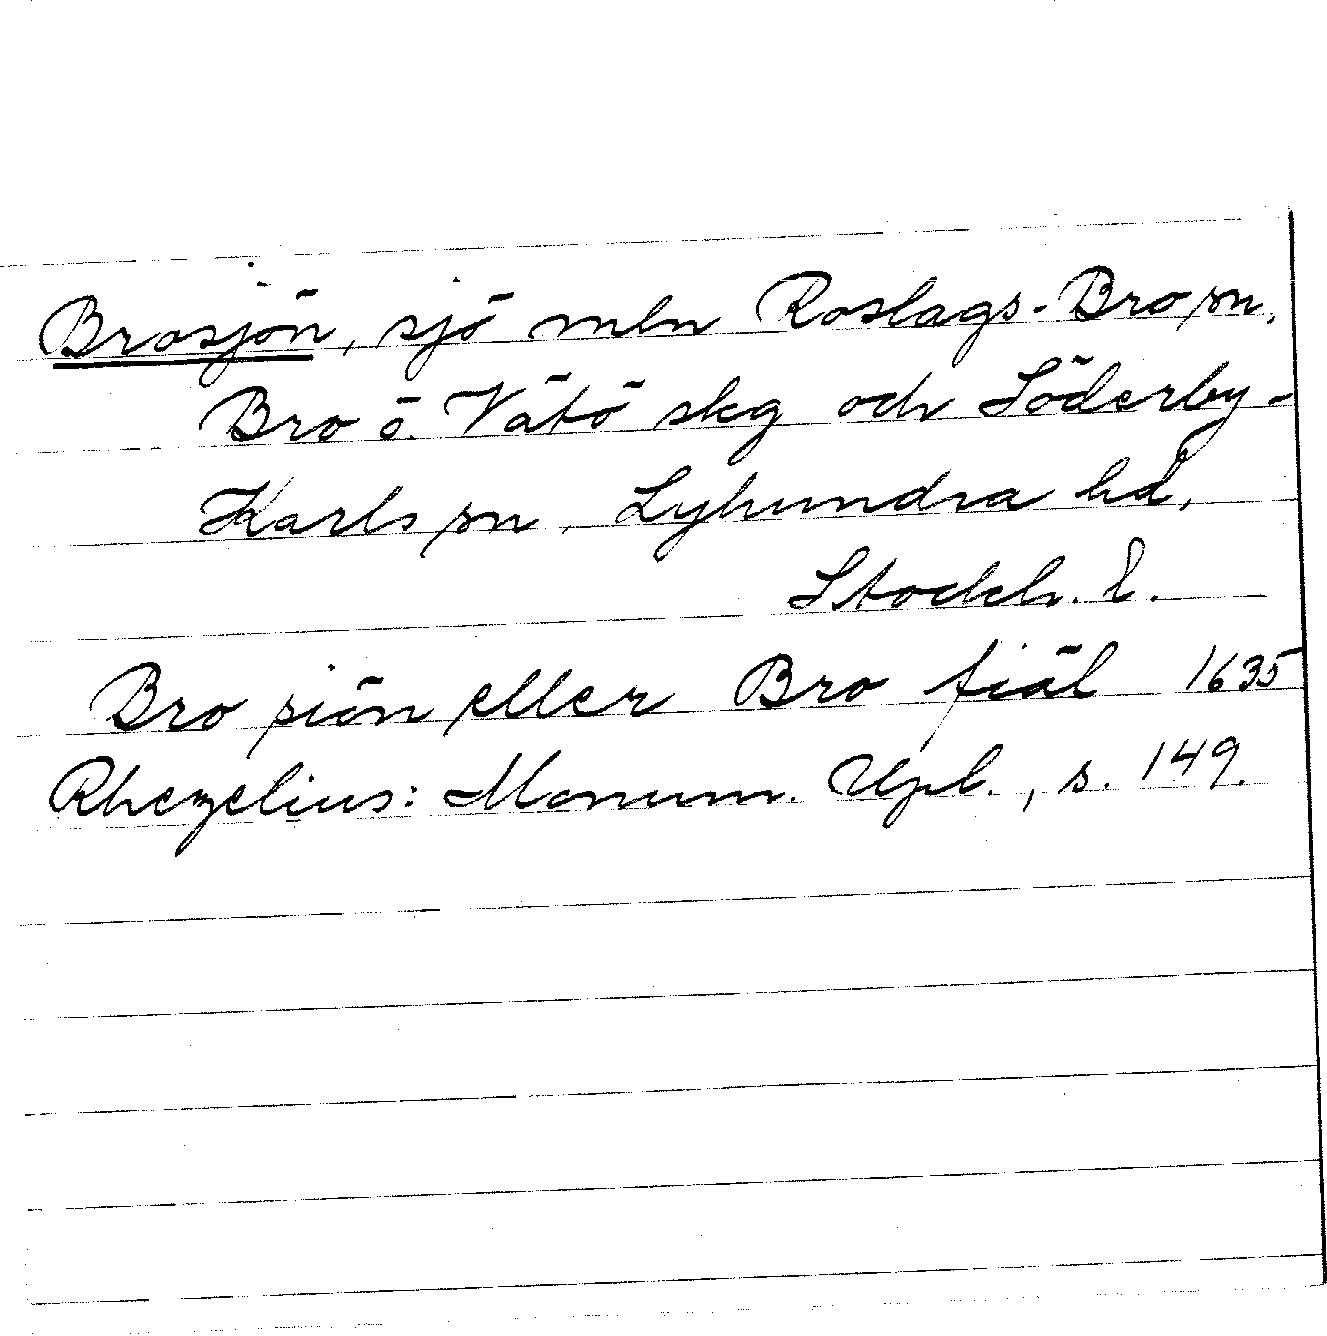 Brosjön, sjö mln Roslags-Bro sn,
Bro o. Vätö skg och Söderby-
Karls sn, Lyhundra hd,
Stockh. l.
Bro siön eller Bro fiäl 1635
Rhezelius: Monum. Upl., s. 149.